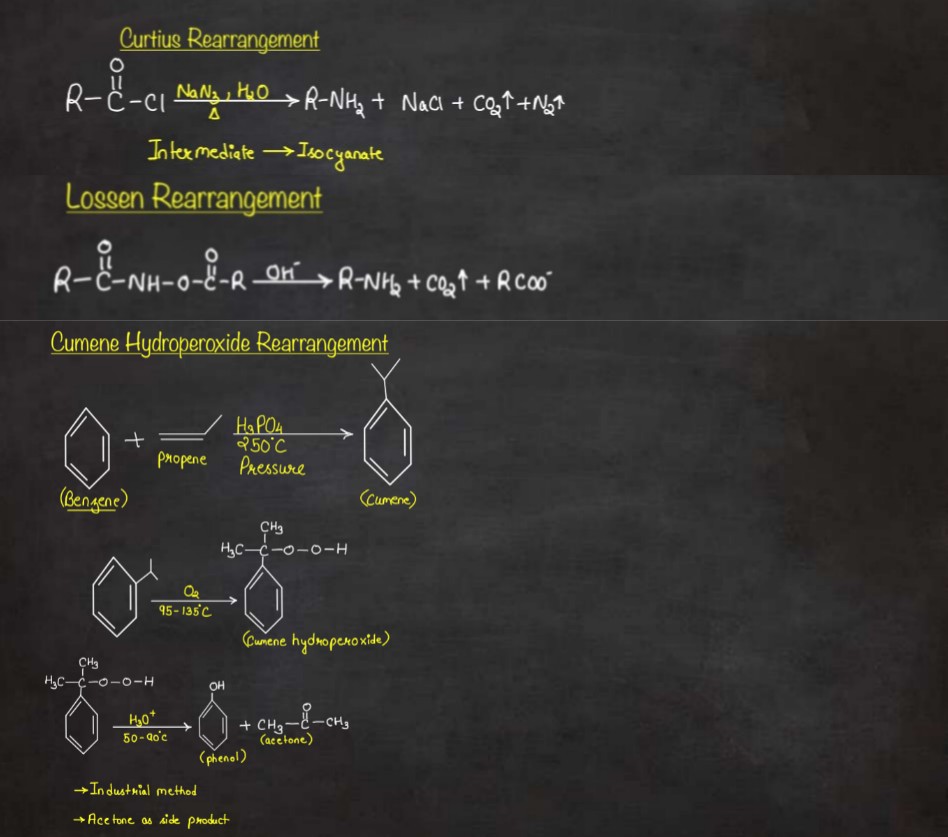 Curtius Rearrangement
O
R-C-Cl NaN3, H2O Δ → R-NH2 + NaCl + CO2↑ + N2↑
Intermediate → Isocyanate
Lossen Rearrangement
O O
R-C-NH-O-C-R OH⁻ → R-NH2 + CO2↑ + RCOO⁻
Cumene Hydroperoxide Rearrangement
+ propene H3PO4 250°C Pressure →
(Benzene) (Cumene)
CH3
H3C-C-O-O-H
O2 95-135°C →
(Cumene hydroperoxide)
CH3
H3C-C-O-O-H
OH O
H3O+ 50-90°C → + CH3-C-CH3
(acetone)
(phenol)
→ Industrial method
→ Acetone as side product